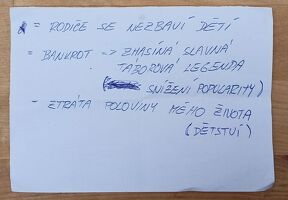 = RODIČE SE NEZBAVÍ DĚTÍ
= BANKROT => ZHASÍNÁ SLAVNÁ
TÁBOROVÁ LEGENDA
( SNÍŽENÍ POPULARITY)
- ZTRÁTA POLOVINY MÉHO ŽIVOTA
(DĚTSTVÍ)